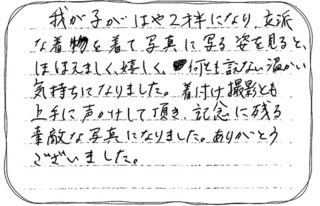 我が子がはや2才半になり、立派
な着物を着て、写真に写る姿を見ると、
ほほえましく、嬉しく、何とも言えない温かい
気持ちになりました。着付け撮影とも
上手に声かけして頂き、記念に残る
素敵な写真になりました。ありがとう
ございました。